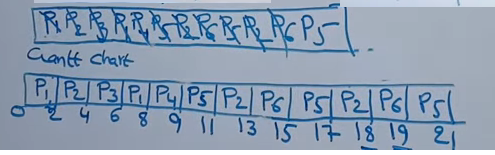 P1 P2 P3 P1 P4 P5 P2 P6 P5 P2 P6 P5
Gantt chart
P1 P2 P3 P1 P4 P5 P2 P6 P5 P2 P6 P5
0 2 4 6 8 9 11 13 15 17 18 19 21